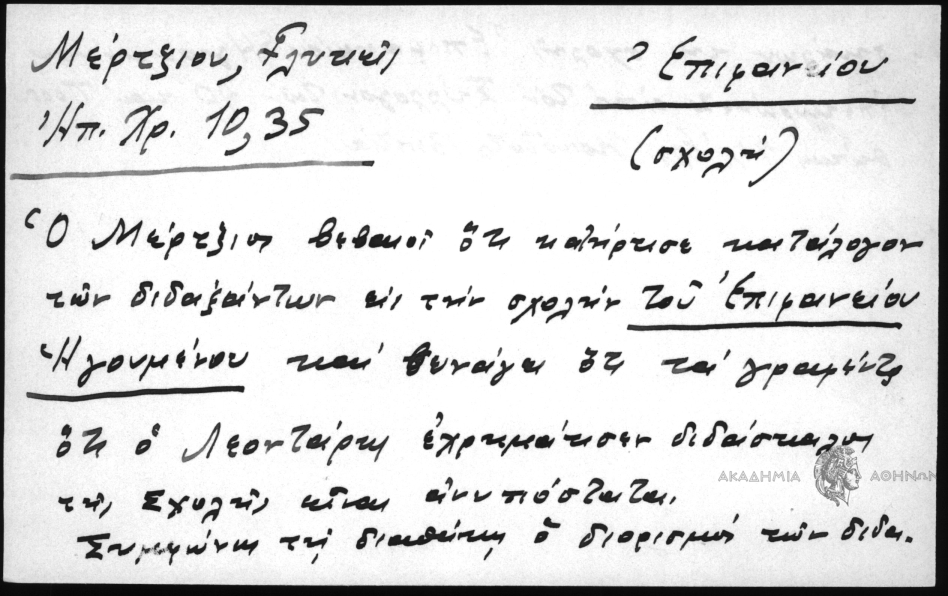 Μέρτζιου, Γλυκκῆ,
Ἠπ. Χρ. 10, 35
Ἐπιφανείου
(σχολή)
Ὁ Μέρτζιος βεβαιοῖ ὅτι κατήρτισε κατάλογον
τῶν διδαξάντων εἰς τὴν σχολὴν τοῦ Ἐπιφανείου
Ἡγουμένου καὶ συνάγει ὅτι τὰ γραφέντα
ὅτι ὁ Λεοντάρης ἐχρημάτισεν διδάσκαλος
τῆς Σχολῆς εἶναι ἀνυπόστατα.
Συμφώνως τῇ διαθήκῃ ὁ διορισμός τῶν διδα-
ΑΚΑΔΗΜΙΑ ΑΘΗΝΩΝ